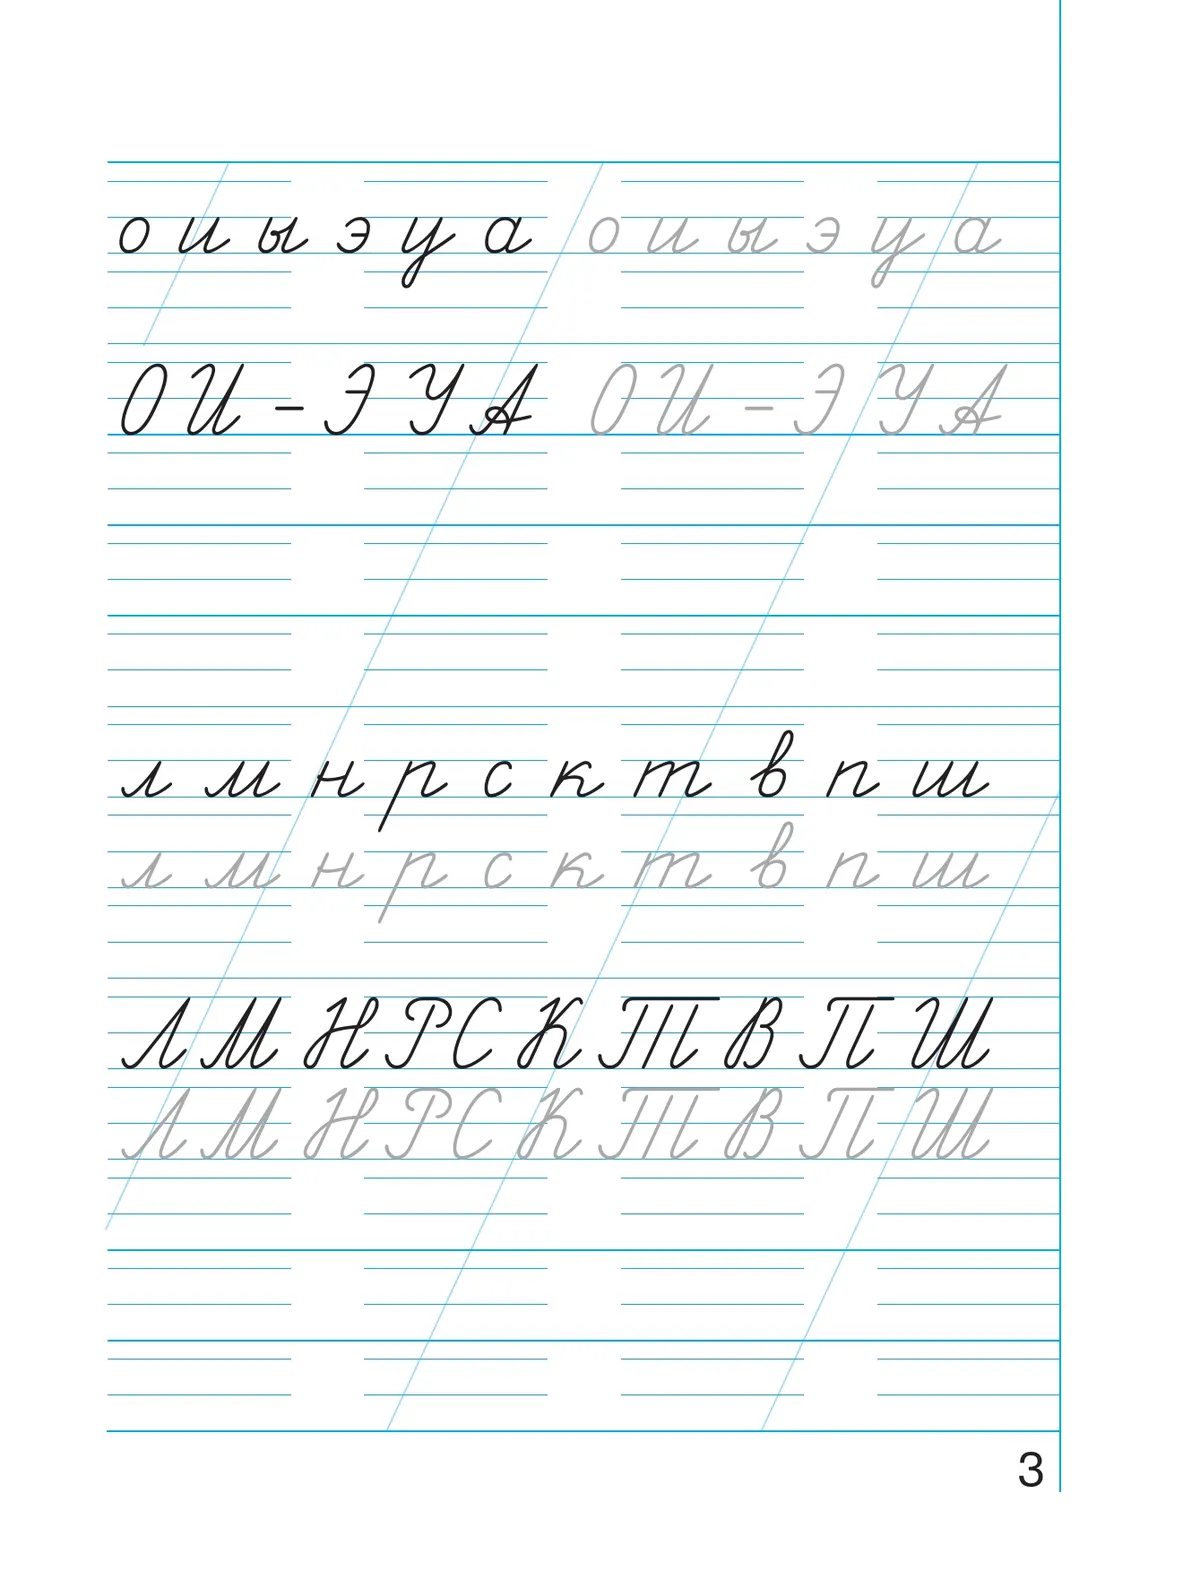 о и ы э у а о и ы э у а
О И – Э У А О И – Э У А
л м н р с к т в п ш
л м н р с к т в п ш
Л М Н Р С К Т В П Ш
Л М Н Р С К Т В П Ш
3